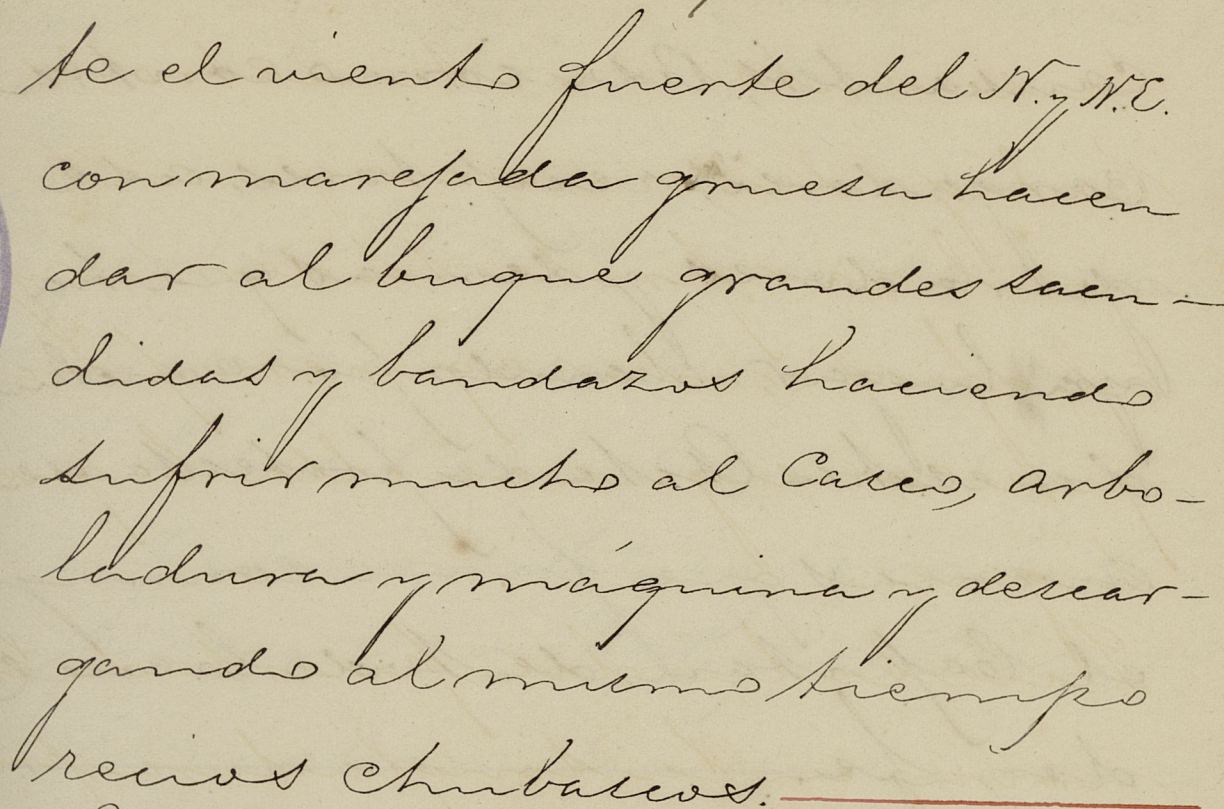 te el viento fuerte del N. y N.E.
con marejada gruesa hacen
dar al buque grandes sacu-
didas y bandazos haciendo
sufrir mucho al Casco, arbo-
ladura y máquina y descar-
gando al mismo tiempo
recios chubascos.